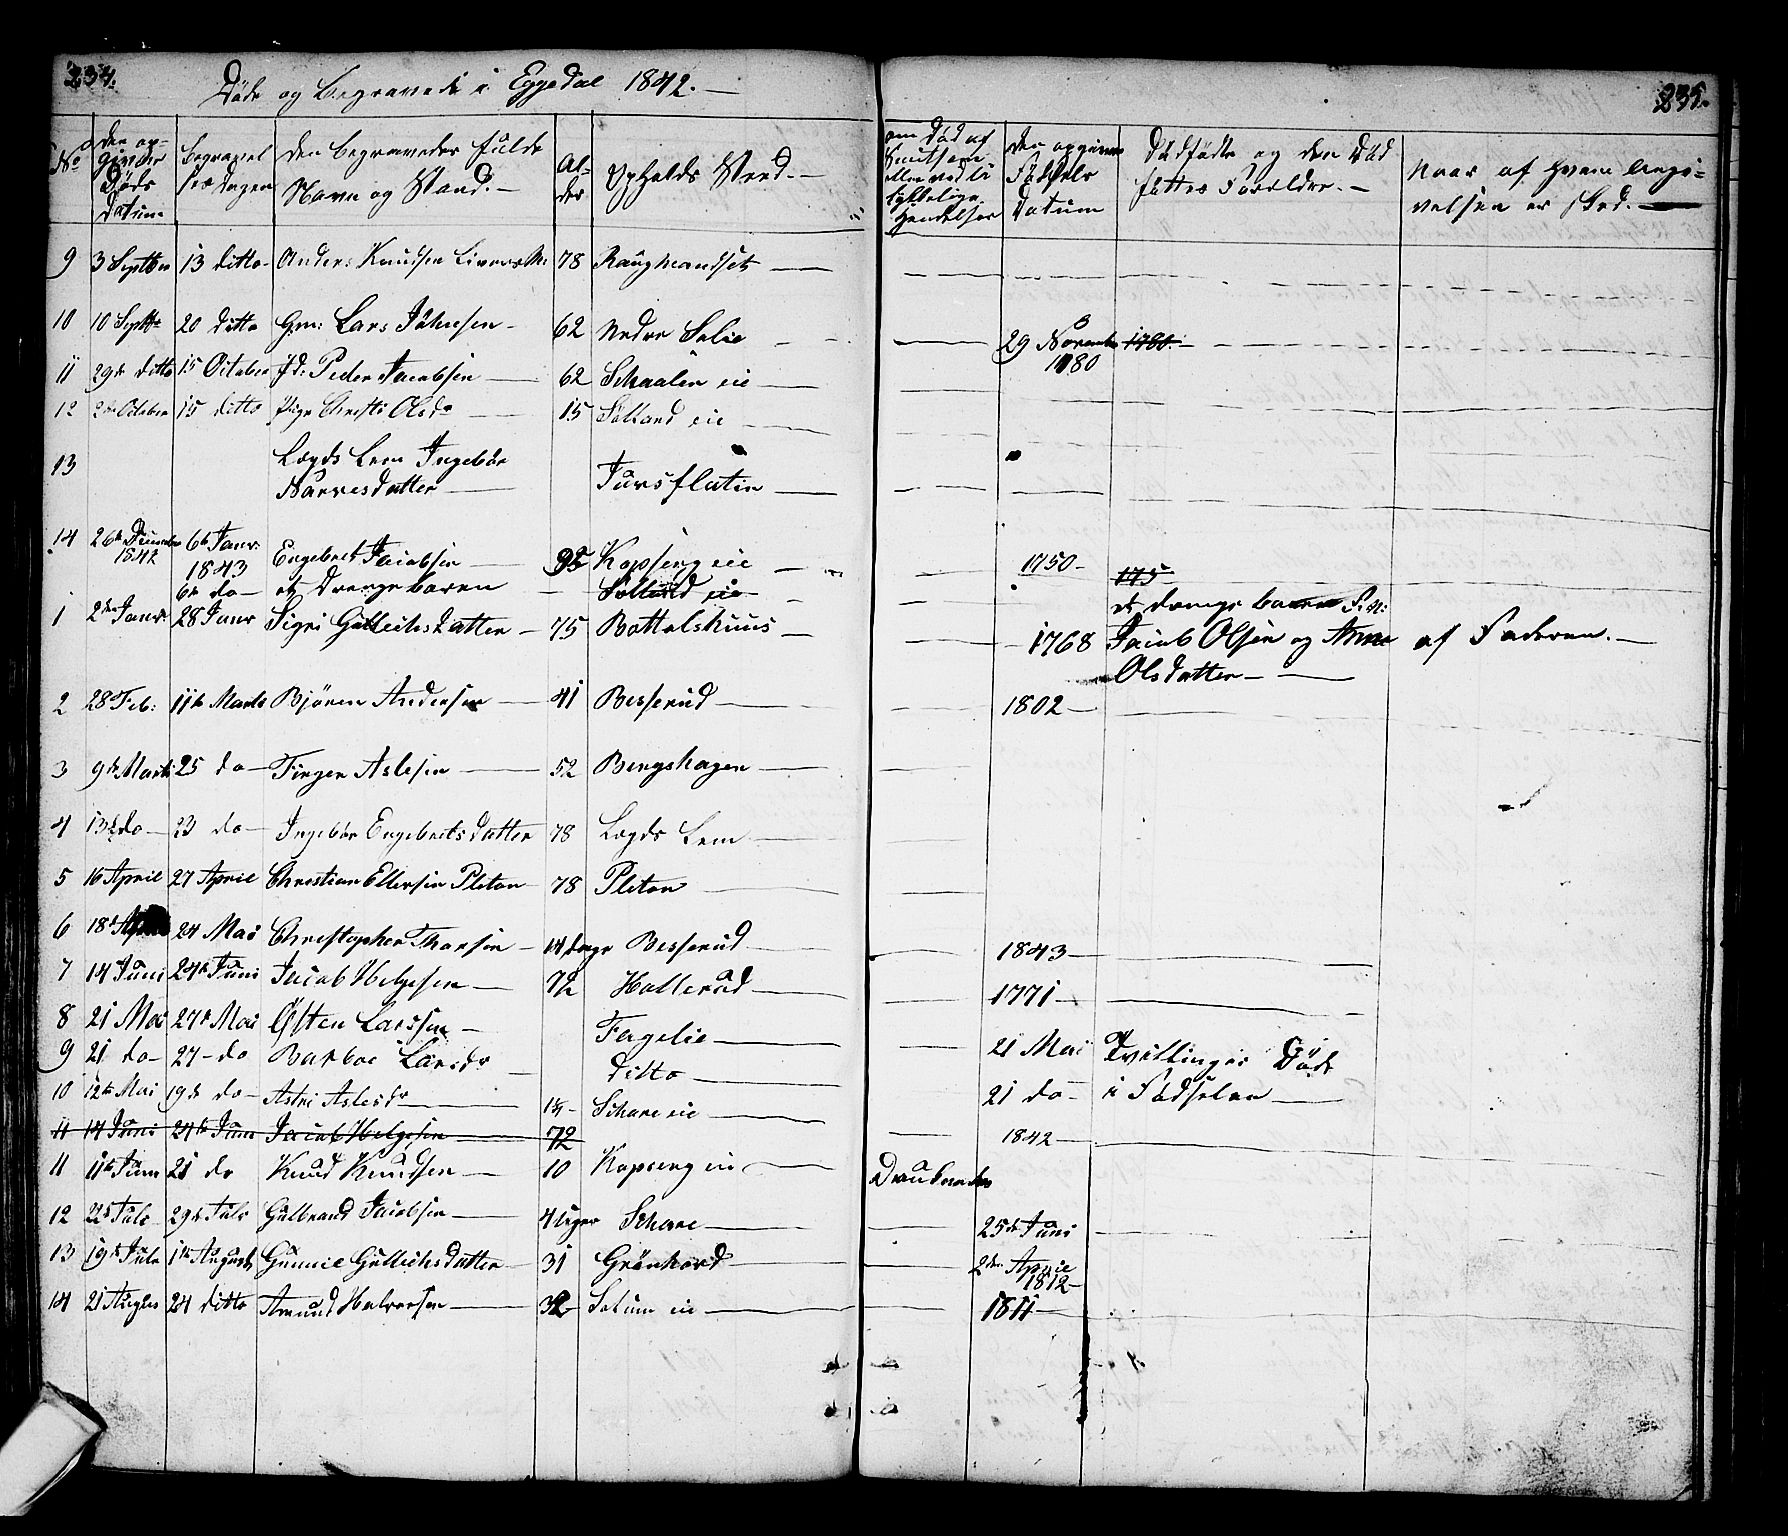 234.
Døde og Begravede i Eggedal 1842.
235.
No
den op-
givne
Døds
Datum
Begravel
ses dagen
den begravedes fulde
Navn og Stand.
Al-
der
Opholds Sted.
om Død af
eller ved u
lykkelige
Hendelser
den opgivne
Fødsels
Datum
Dødfødte og den Død
føttes Forældre.
Naar af Hvem Angi-
velsen er skeed.
9 3 Septbr 13 ditto Anders Knudsen 78 Raugmandset
10 10 Septbr 20 ditto Gm: Lars Johnsen 62 Nedre Solie 29 Novembr 1780.
1780
11 29de ditto 15 October Peder Jacobsen 62 Skaalen eie
12 2de October 15 ditto Pige Christi Olsdr 15 Solland eie
13 Lægds Lem Ingebør
Narvesdatter Tursflatin
14 26de December 1842 6te Janr: 1843 Engebret Jacobsen Kopseng eie 1750
175
6te do et Drengebaren Solland eie
et drenge baren F.N:
1 2den Janr: 28 Janr Sigri Gullichsdatter 75 Bottolshuus 1768 Jacob Olsen og Anne af Faderen.
Olsdatter
2 28 Feb: 11te Marts Bjøren Andersen 41 Besserud 1802
3 9de Marts 25 do Torger Aslesen 52 Bergshagen
4 13de do 23 do Ingebør Engebretsdatter 78 Lægds Lem
5 16 April 27 April Christian Ellefsen Pleton 78 Pleton
6 18de 24 Mai Christopher Thorsen 14 dage Besserud 1843
7 14 Juni 24de Juni Jacob Helgesen 72 Hollerud 1771
8 21 Mai 27de Mai Østen Larssen Fagelie 21 Mai Tvillinger Døde
9 21 do 27 do Barboe Larsdr ditto 21 do i Fødselen
10 12te Mai 19de do Astri Aslesdr Skare eie 1842
11 14 Juni 24de Juni Jacob Helgesen 72
11 11te Juni 21 do Knud Knudsen 10 Kopseng eie Druknedes
12 22de Juli 29de Juli Gulbrand Jacobsen 4 uger Skare 25de Juni
13 19de Juli 1te August Gunnie Gullichsdatter 31 Grønhovd 2den April
1812
14 21 August 24 ditto Amund Halvorsen 32 Solum eie 1811